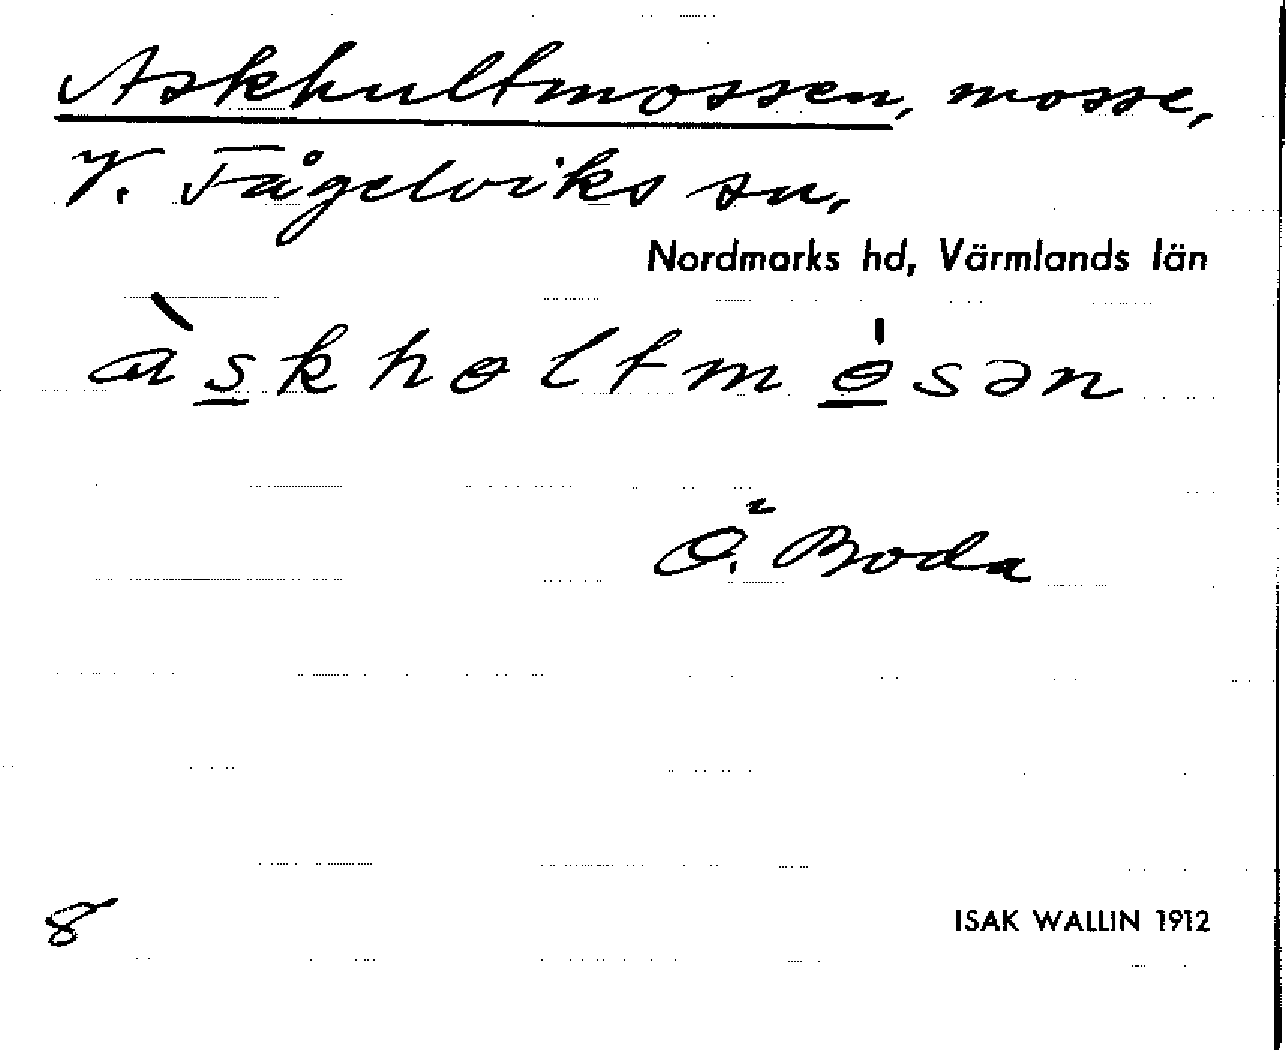 Askhultmossen, mosse,
V. Fågelviks sn,
Nordmarks hd, Värmlands län
àskhɵltmɵ́sən
Ö. Boda
8
ISAK WALLIN 1912